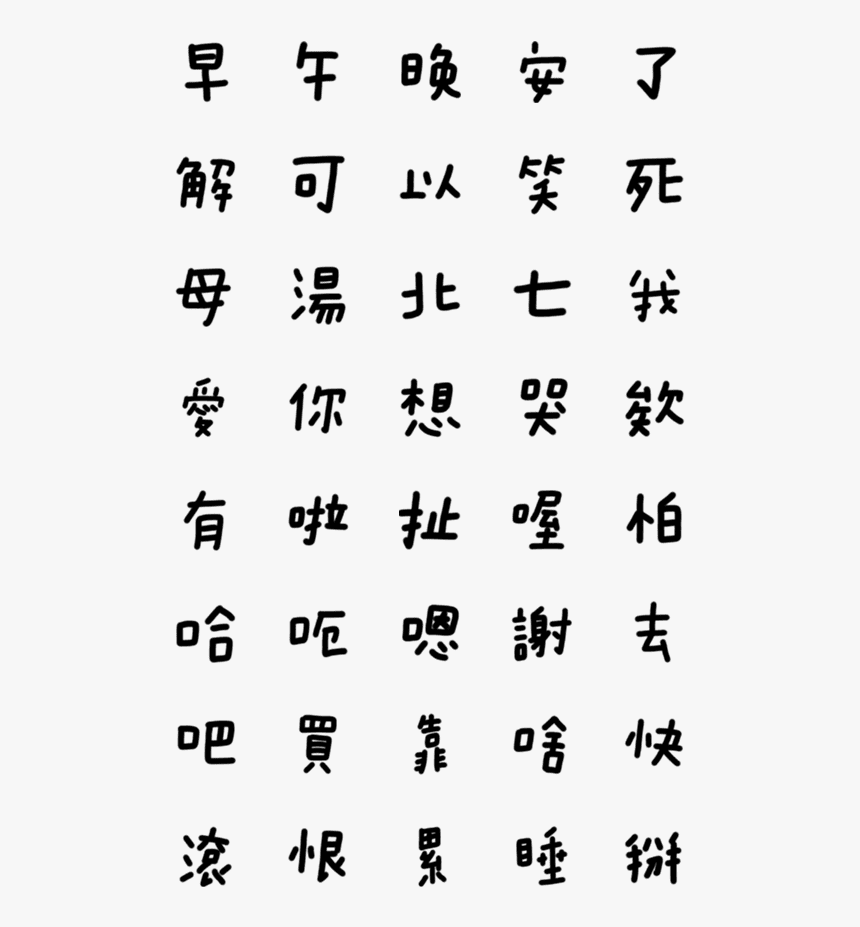 早 午 晚 安 了
解 可 以 笑 死
母 湯 北 七 我
愛 你 想 哭 欸
有 啦 扯 喔 怕
哈 呃 嗯 謝 去
吧 買 靠 啥 快
滾 恨 累 睡 掰